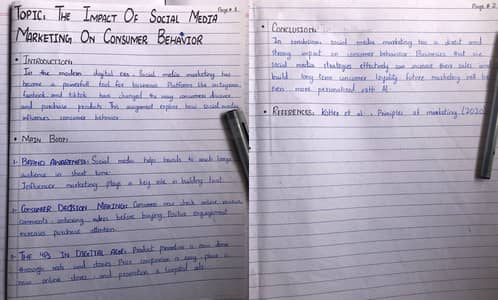 Page # 1
TOPIC: THE IMPACT OF SOCIAL MEDIA
MARKETING ON CONSUMER BEHAVIOR
• INTRODUCTION:
In the modern digital era, social media marketing has
become a powerful tool for businesses. Platforms like instagram,
facebook and tiktok have changed the way consumers discover
and purchase products. This assignment explore how social media
influences consumer behavior.
• MAIN BODY:
1- BRAND AWARENESS: Social media helps brands to reach large
audience in short time.
Influencer marketing plays a key role in building trust.
2- CONSUMER DECISION MAKING: Consumers now check online reviews,
comments, unboxing videos before buying. Positive engagement
increases purchase
3- THE 4PS IN DIGITAL AGE: Product promotion is now done
through reels and stories. Price comparison is easy, place is
now online stores, and promotion is targeted ads.
Page # 2
• CONCLUSION:
In conclusion, social media marketing has a direct and
strong impact on consumer behavior. Businesses that use
social media strategies effectively can increase their sales and
build long term consumer loyalty. Future marketing will be
even more personalized with AI.
• REFERENCES: Kotler et al. Principles of marketing (2020)